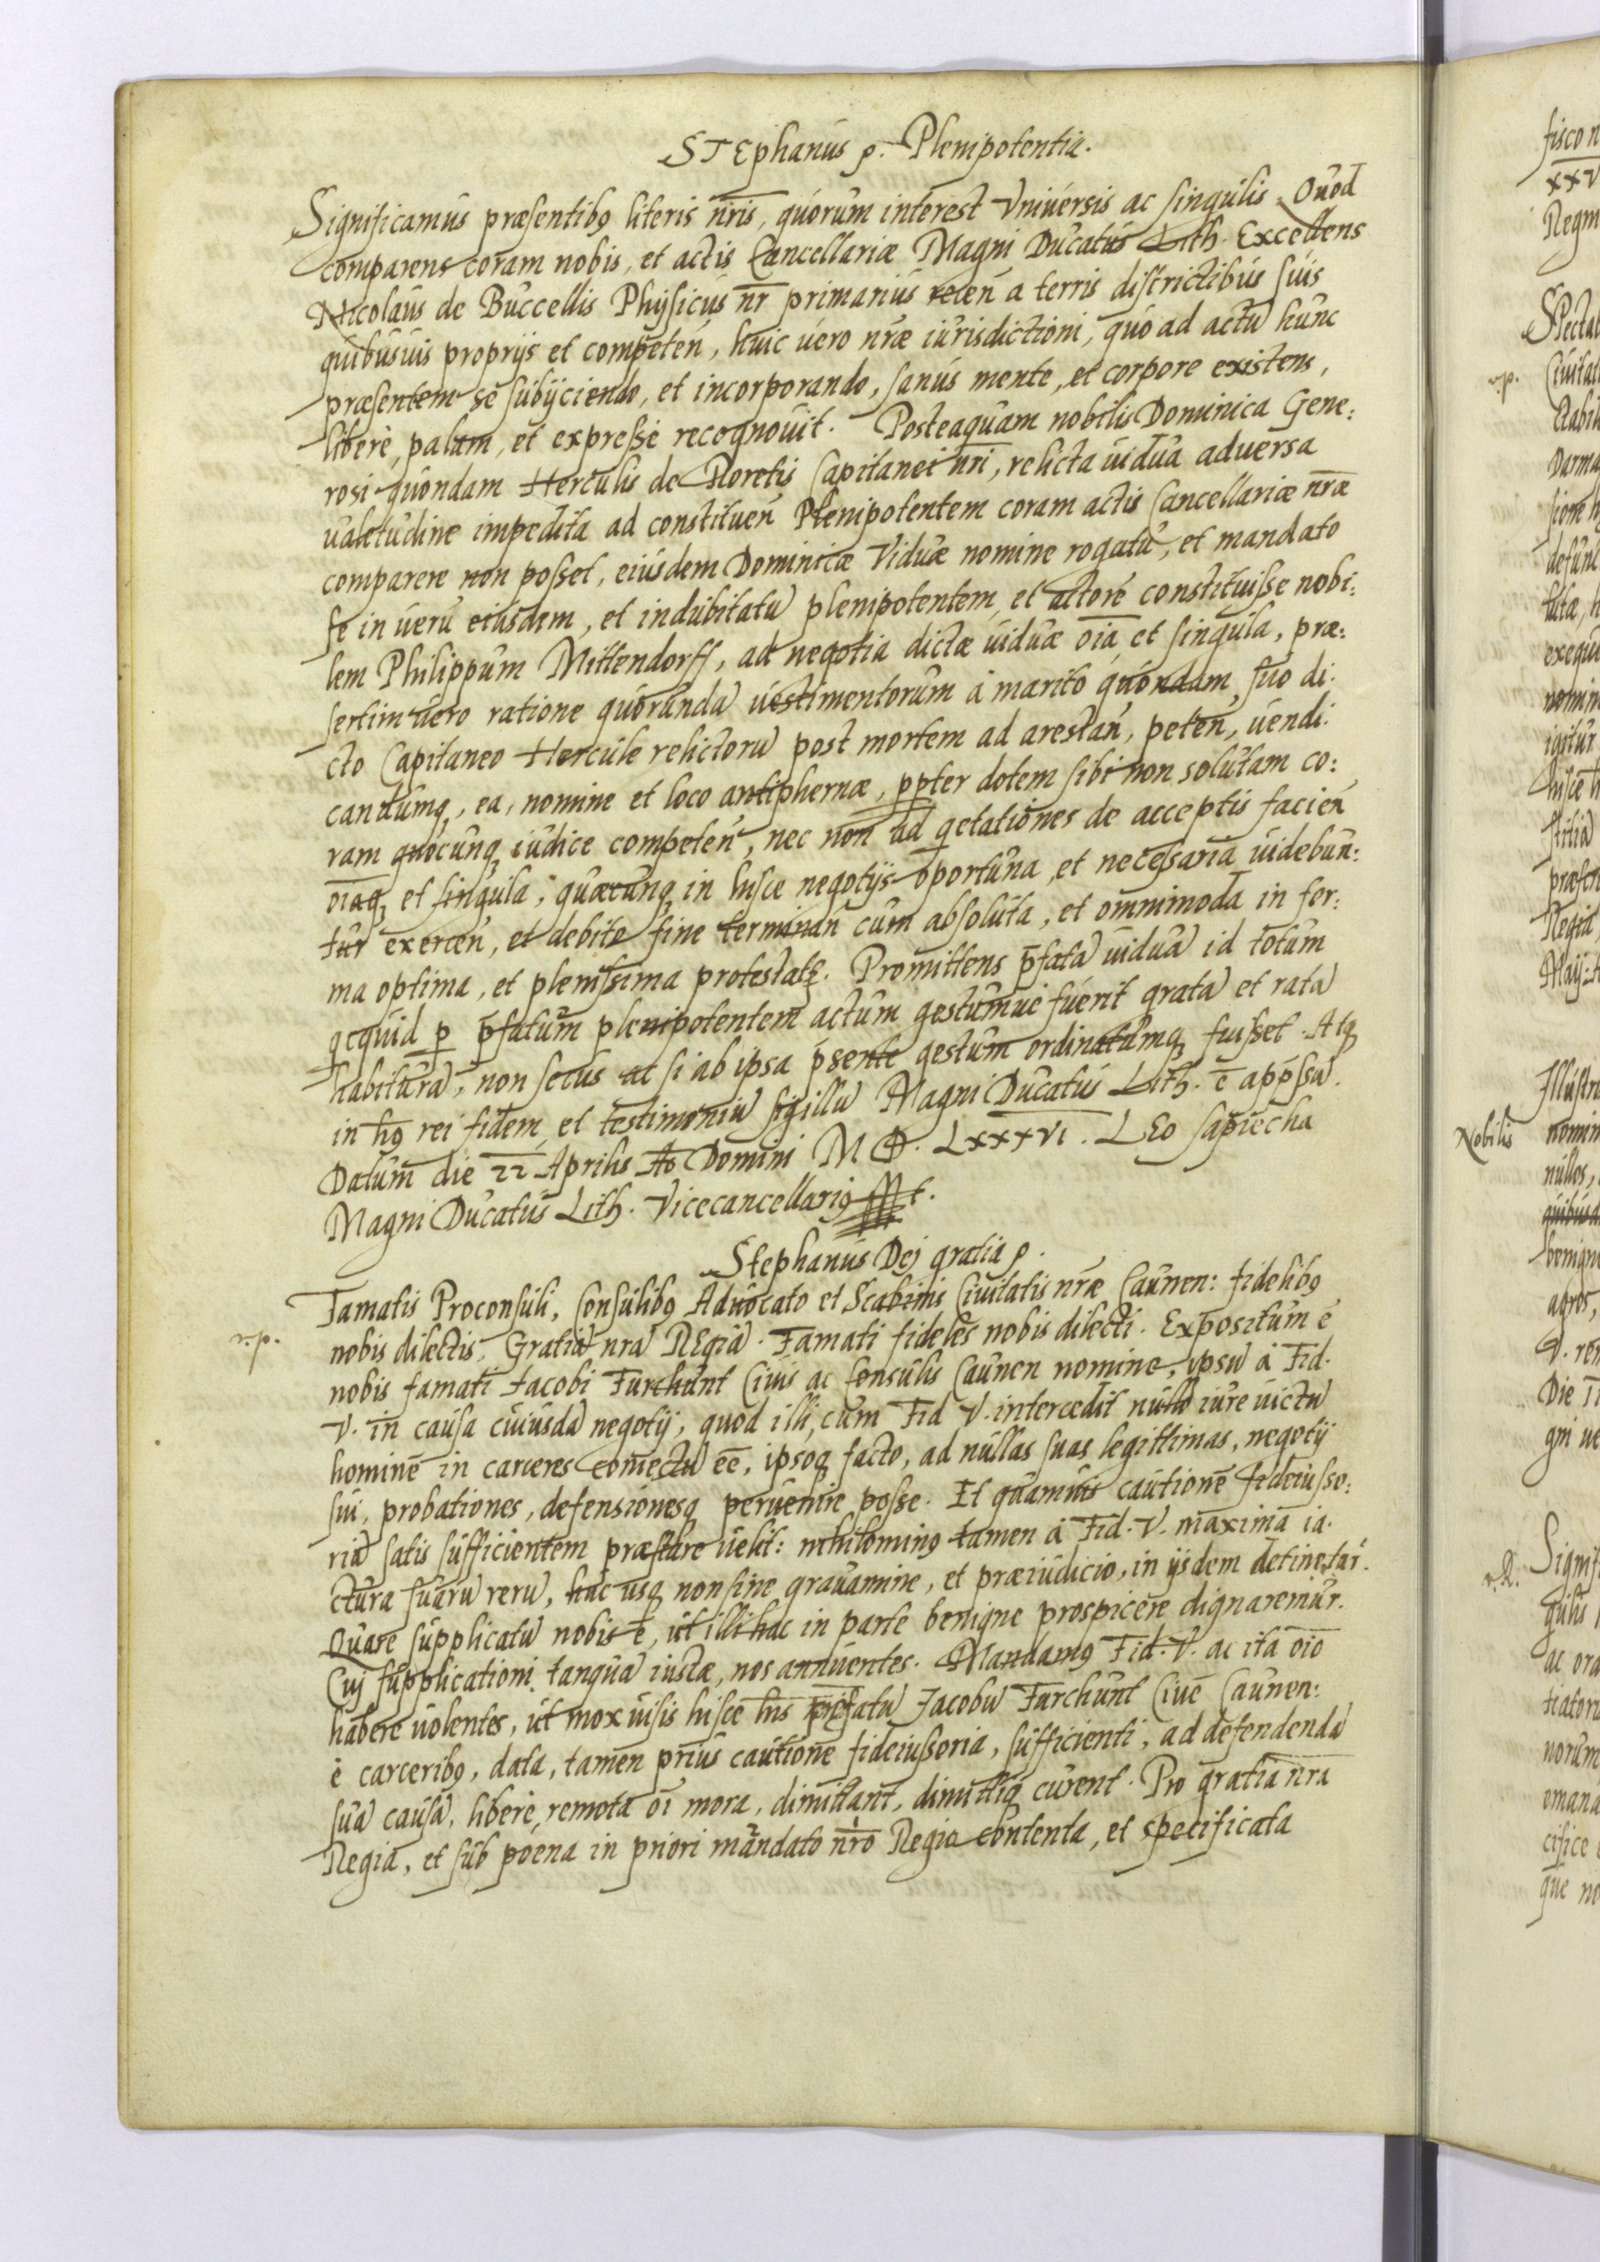 STEphanus ꝛ. Plenipotentia.
Significamus præsentibꝰ literis nr̃is, quorum interest Vniuersis ac singulis. Quod
comparens coram nobis, et actis Cancellariæ Magni Ducatus Lith. Excellens
Nicolaus de Buccellis Physicus nr̃ primarius recen̄ a terris districtibus suis
quibusuis proprijs et competen̄, huic uero nr̃æ iurisdictioni, quo ad actū hunc
præsentem se subijciendo, et incorporando, sanus mente, et corpore existens,
liberè, palam, et expresse recognouit. Posteaquam nobilis Dominica Gene:
rosi quondam Herculis de Floretis Capitanei nr̃i, relicta uidua aduersa
ualetudine impedita ad constituen̄ Plenipotentem coram actis Cancellariæ nr̃æ
comparere non posset, eiusdem Dominicæ Viduæ nomine rogatū, et mandato
se in uerū eiusdem, et indubitatū plenipotentem, et actorē constituisse nobi:
lem Philippum Mittendorff, ad negotia dictæ uiduæ oīa et singula, præ:
sertim uero ratione quorundā uestimentorum à marito quondam suo di:
cto Capitaneo Hercule relictorū post mortem ad arestan̄, peten̄, uendi:
candumqꝫ, ea, nomine et loco antiphernæ, ꝓpter dotem sibi non solutam co:
ram quocunqꝫ iudice competen̄, nec non ad qetationes de acceptis facien̄
oīaqꝫ et singula, quæcunqꝫ in hisce negotijs oportuna, et necessaria uidebun:
tur exercen̄, et debito fine terminan̄ cum absoluta, et omnimoda in for:
ma optima, et plenissima protestatē. Promittens p̄fata uidua id totum
qcquid ꝑ p̄fatum plenipotentem actum gestumue fuerit gratū et ratū
habiturā, non secus ac si ab ipsa p̄sente gestum ordinatumqꝫ fuisset. Atqꝫ
in hꝰ rei fidem, et testimoniū sigillū Magni Ducatus Lith. ē app̄ssū.
Datum die 22 Aprilis Aō Domini M D. LXXXVI. LEo sapiecha
Magni Ducatus Lith. Vicecancellariꝰ
Stephanus Dej gratia ꝛ.
Famatis Proconsuli, Consulibꝰ Aduocato et Scabinis Ciuitatis nr̃æ Caunen: fidelibꝰ
nobis dilectis, Gratiā nrā REgiā. Famati fideles nobis dilecti. Expositum ē
nobis famati Jacobi Furchunt Ciuis ac Consulis Caunen nomine, ipsū à Fid.
V. in causa cuiusdā negotij, quod illi, cum Fid V. intercedit nullo iure uictū
hominē in carceres coniectū eē, ipsoqꝫ facto, ad nullas suas legittimas, negotij
sui, probationes, defensionesqꝫ peruenire posse. Et quamuis cautionē fideiusso:
riā satis sufficientem præstare uelit: nihilominꝰ tamen à Fid. V. maxima ia:
ctura suarū rerū, huc usqꝫ non sine grauamine, et præiudicio, in ijsdem detinetur.
Quare supplicatū nobis ē, ut illi hac in parte benigne prospicere dignaremur.
Cuj supplicationi tanquā iustæ, nos annuentes. Mandamꝰ Fid. V. ac ita oīo
habere uolentes, ut mox uisis hisce lr̄is præfatū Jacobū Furchunt Ciuē Caunen:
è carceribꝰ, data, tamen prius cautione fideiussoria, sufficienti, ad defendendā
suā causā, liberè, remota oī mora, dimittant, dimittiqꝫ curent. Pro gratia nr̃a
Regia, et sub poena in priori mandato nr̃o Regio contenta, et specificata
r.p.
Nobilis